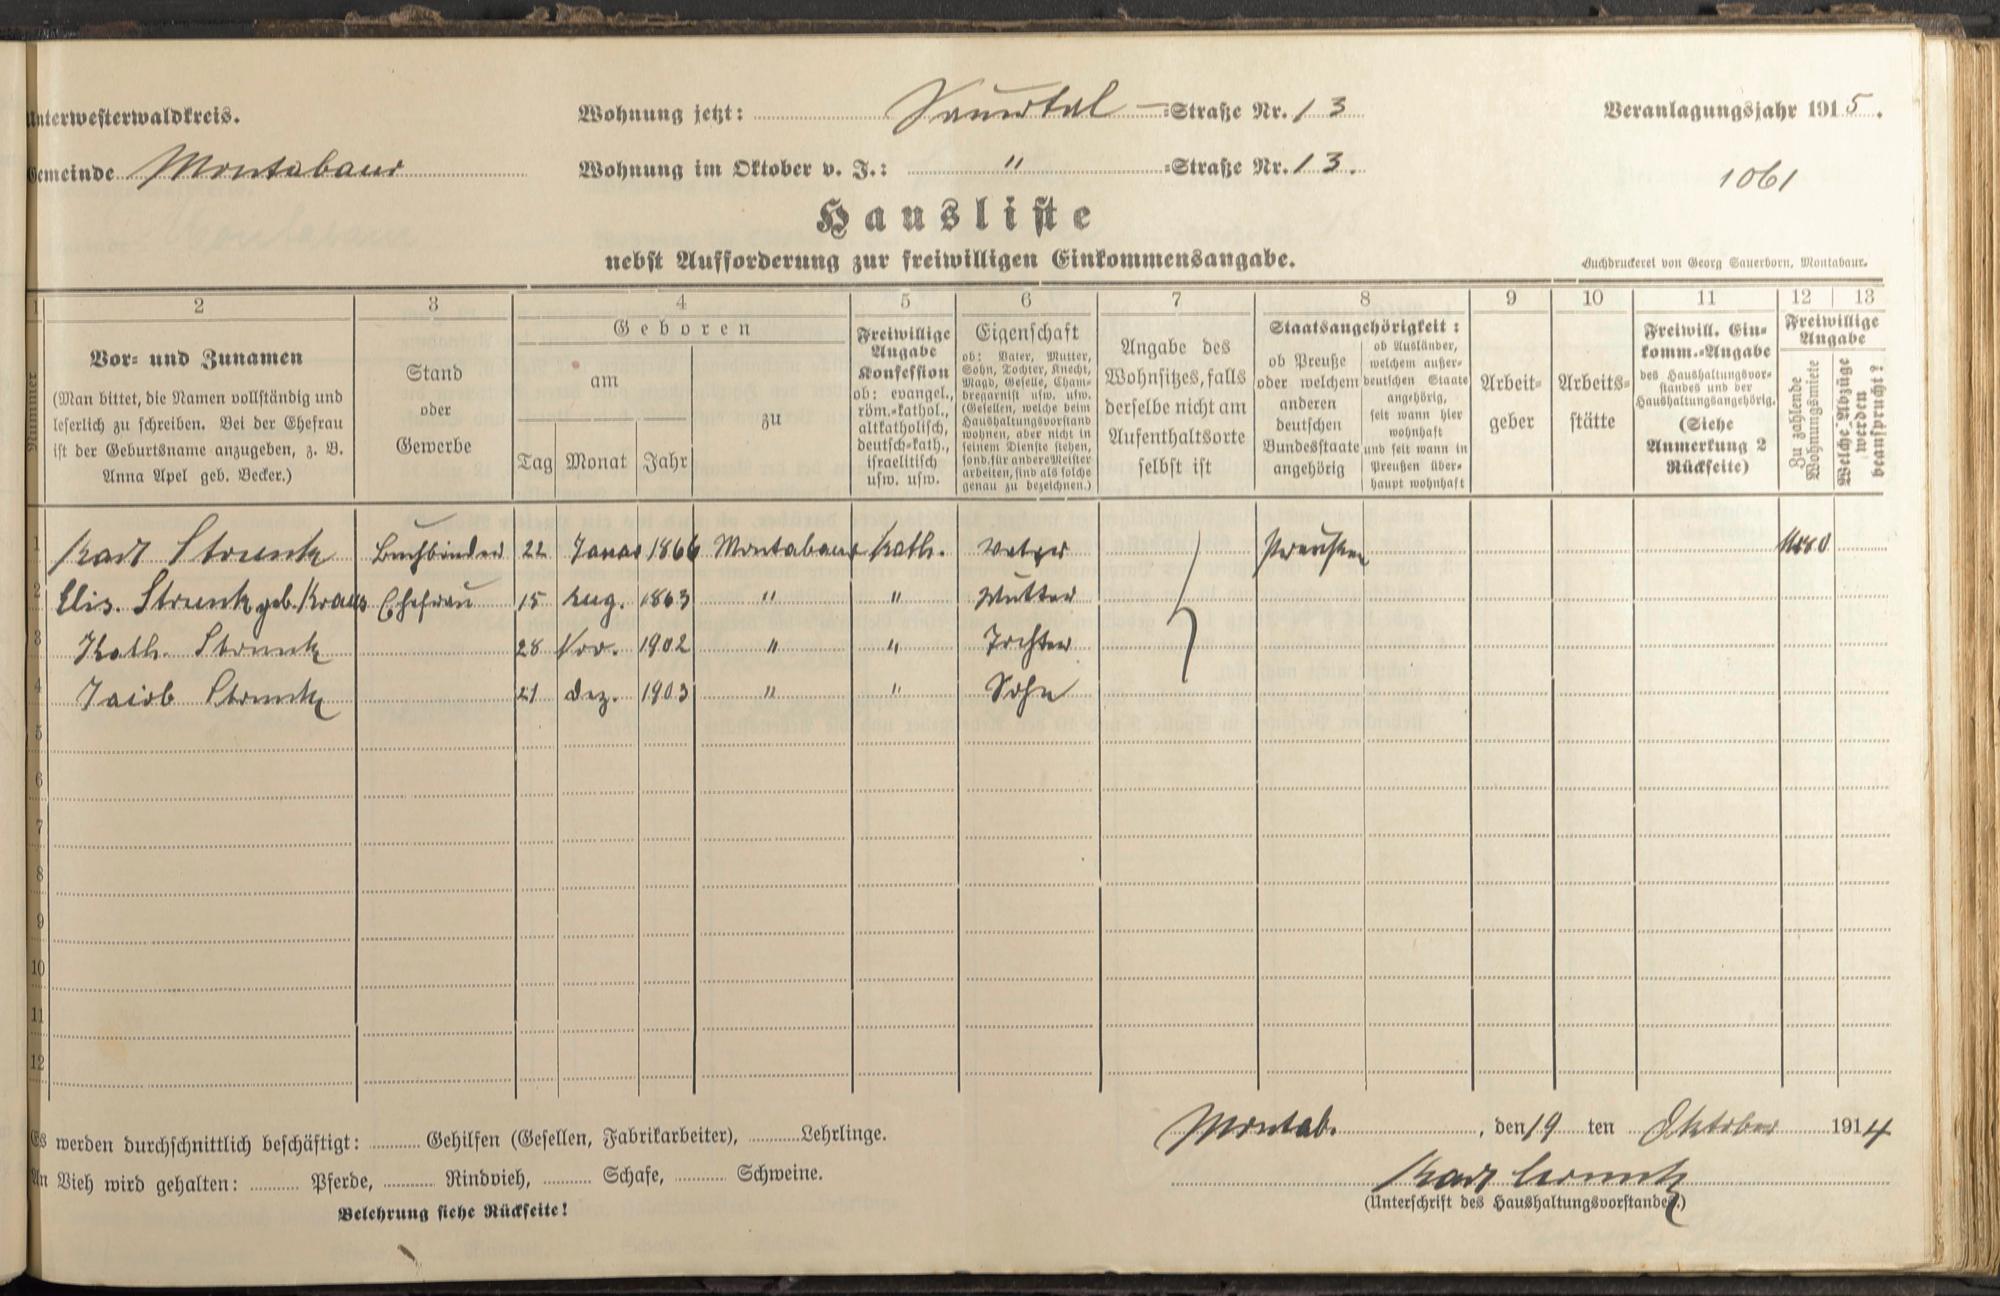 Unterwesterwaldkreis.
Wohnung jetzt: Sauertal-Straße Nr. 13
Veranlagungsjahr 1915.
Gemeinde Montabaur
Wohnung im Oktober v. J.: " -Straße Nr. 13.
1061
Hausliste
nebst Aufforderung zur freiwilligen Einkommensangabe.
Buchdruckerei von Georg Sauerborn, Montabaur.
1 2 3 4 5 6 7 8 9 10 11 12 13
Nummer
Vor- und Zunamen
(Man bittet, die Namen vollständig und
leserlich zu schreiben. Bei der Ehefrau
ist der Geburtsname anzugeben, z. B.
Anna Apel geb. Becker.)
Stand
oder
Gewerbe
Geboren
am
Tag Monat Jahr
zu
Freiwillige
Angabe
Konfession
ob: evangel.,
röm.-kathol.,
altkatholisch,
deutsch-kath.,
israelitisch
usw. usw.
Eigenschaft
ob: Vater, Mutter,
Sohn, Tochter, Knecht,
Magd, Geselle, Cham-
bregarnist usw. usw.
(Gesellen, welche beim
Haushaltungsvorstand
wohnen, aber nicht in
seinem Dienste stehen,
sond. für andere Meister
arbeiten, sind als solche
genau zu bezeichnen.)
Angabe des
Wohnsitzes, falls
derselbe nicht am
Aufenthaltsorte
selbst ist
Staatsangehörigkeit:
ob Preuße
oder welchem
anderen
deutschen
Bundesstaate
angehörig
ob Ausländer,
welchem außer-
deutschen Staate
angehörig,
seit wann hier
wohnhaft
und seit wann in
Preußen über-
haupt wohnhaft
Arbeit-
geber
Arbeits-
stätte
Freiwill. Ein-
komm.-Angabe
des Haushaltungsvor-
standes und der
Haushaltungsangehörig.
(Siehe
Anmerkung 2
Rückseite)
Freiwillige
Angabe
Zu zahlende
Wohnungsmiete
Welche Abzüge
werden
beansprucht?
1 Karl Strunk Buchbinder 22 Januar 1866 Montabaur Kath. Vater Preußen 180
2 Elis. Strunk geb. Kraus Ehefrau 15 Aug. 1863 " " Mutter
3 Kath. Strunk 28 Nov. 1902 " " Tochter
4 Jacob Strunk 21 Dez. 1903 " " Sohn
5
6
7
8
9
10
11
12
Es werden durchschnittlich beschäftigt: Gehilfen (Gesellen, Fabrikarbeiter), Lehrlinge.
Montab., den 19ten Oktober 1914
An Vieh wird gehalten: Pferde, Rindvieh, Schafe, Schweine.
Karl Strunk
(Unterschrift des Haushaltungsvorstandes.)
Belehrung siehe Rückseite!